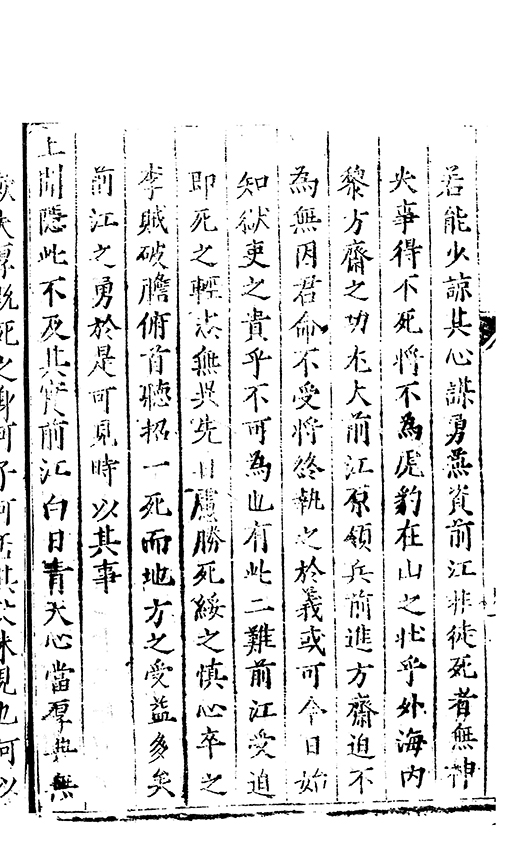 若能少諒其心謀勇兼資前江非徒死者無神
夾事得不死將不為虎豹在山之壯乎外海內
黎方齋之功尤大前江原領兵前進方齋迫不
為無因君命不受將終執之於義或可今日始
知獄吏之貴乎不可為也有此二難前江受迫
即死之輕決無與先日慮勝死綏之慎心卒之
李賊破膽俯首聽招一死而地方之受益多矣
前江之勇於是可見時以其事
上聞隱此不及其實前江白日青天心當厚典無
死之